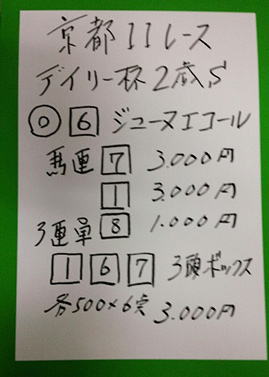 京都11レース
デイリー杯2歳S
◎ 6 ジューヌエコール
馬連 7 3.000円
1 3.000円
3連単 8 1.000円
1 6 7 3頭ボックス
各500×6点 3.000円